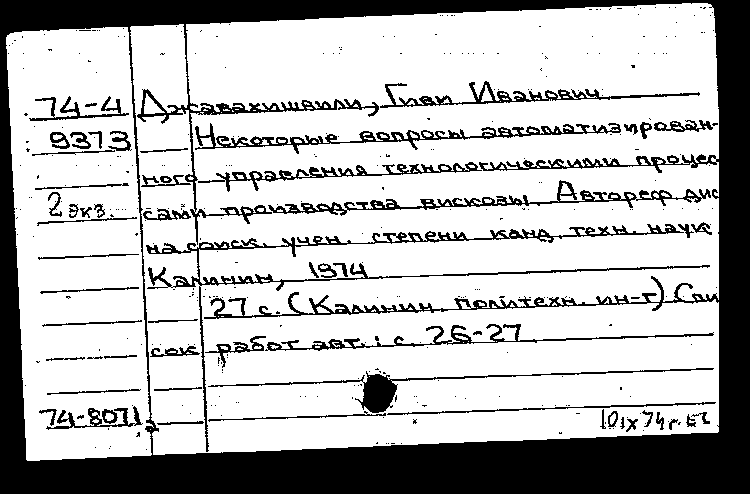 74-4 Джавахишвили, Гиви Иванович
9373 Некоторые вопросы автоматизирован-
ного управления технологическими процес
2 экз. сами производства вискозы. Автореф. дис
на соиск. учен. степени канд. техн. наук.
Калинин, 1974
27 с. (Калинин. политехн. ин-т) Спи
сок работ авт.: с. 26-27
74-8071
10 IX 74 г.